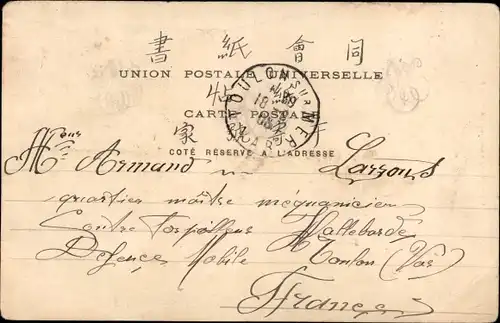 書 紙 會 同
UNION POSTALE UNIVERSELLE
CARTE POSTALE
家
COTÉ RÉSERVÉ A L'ADRESSE
TOULON SUR MER
Armand
quartier maître mécanicien
Contre Torpilleur Hallebarde
Défence Mobile Toulon (Var)
France